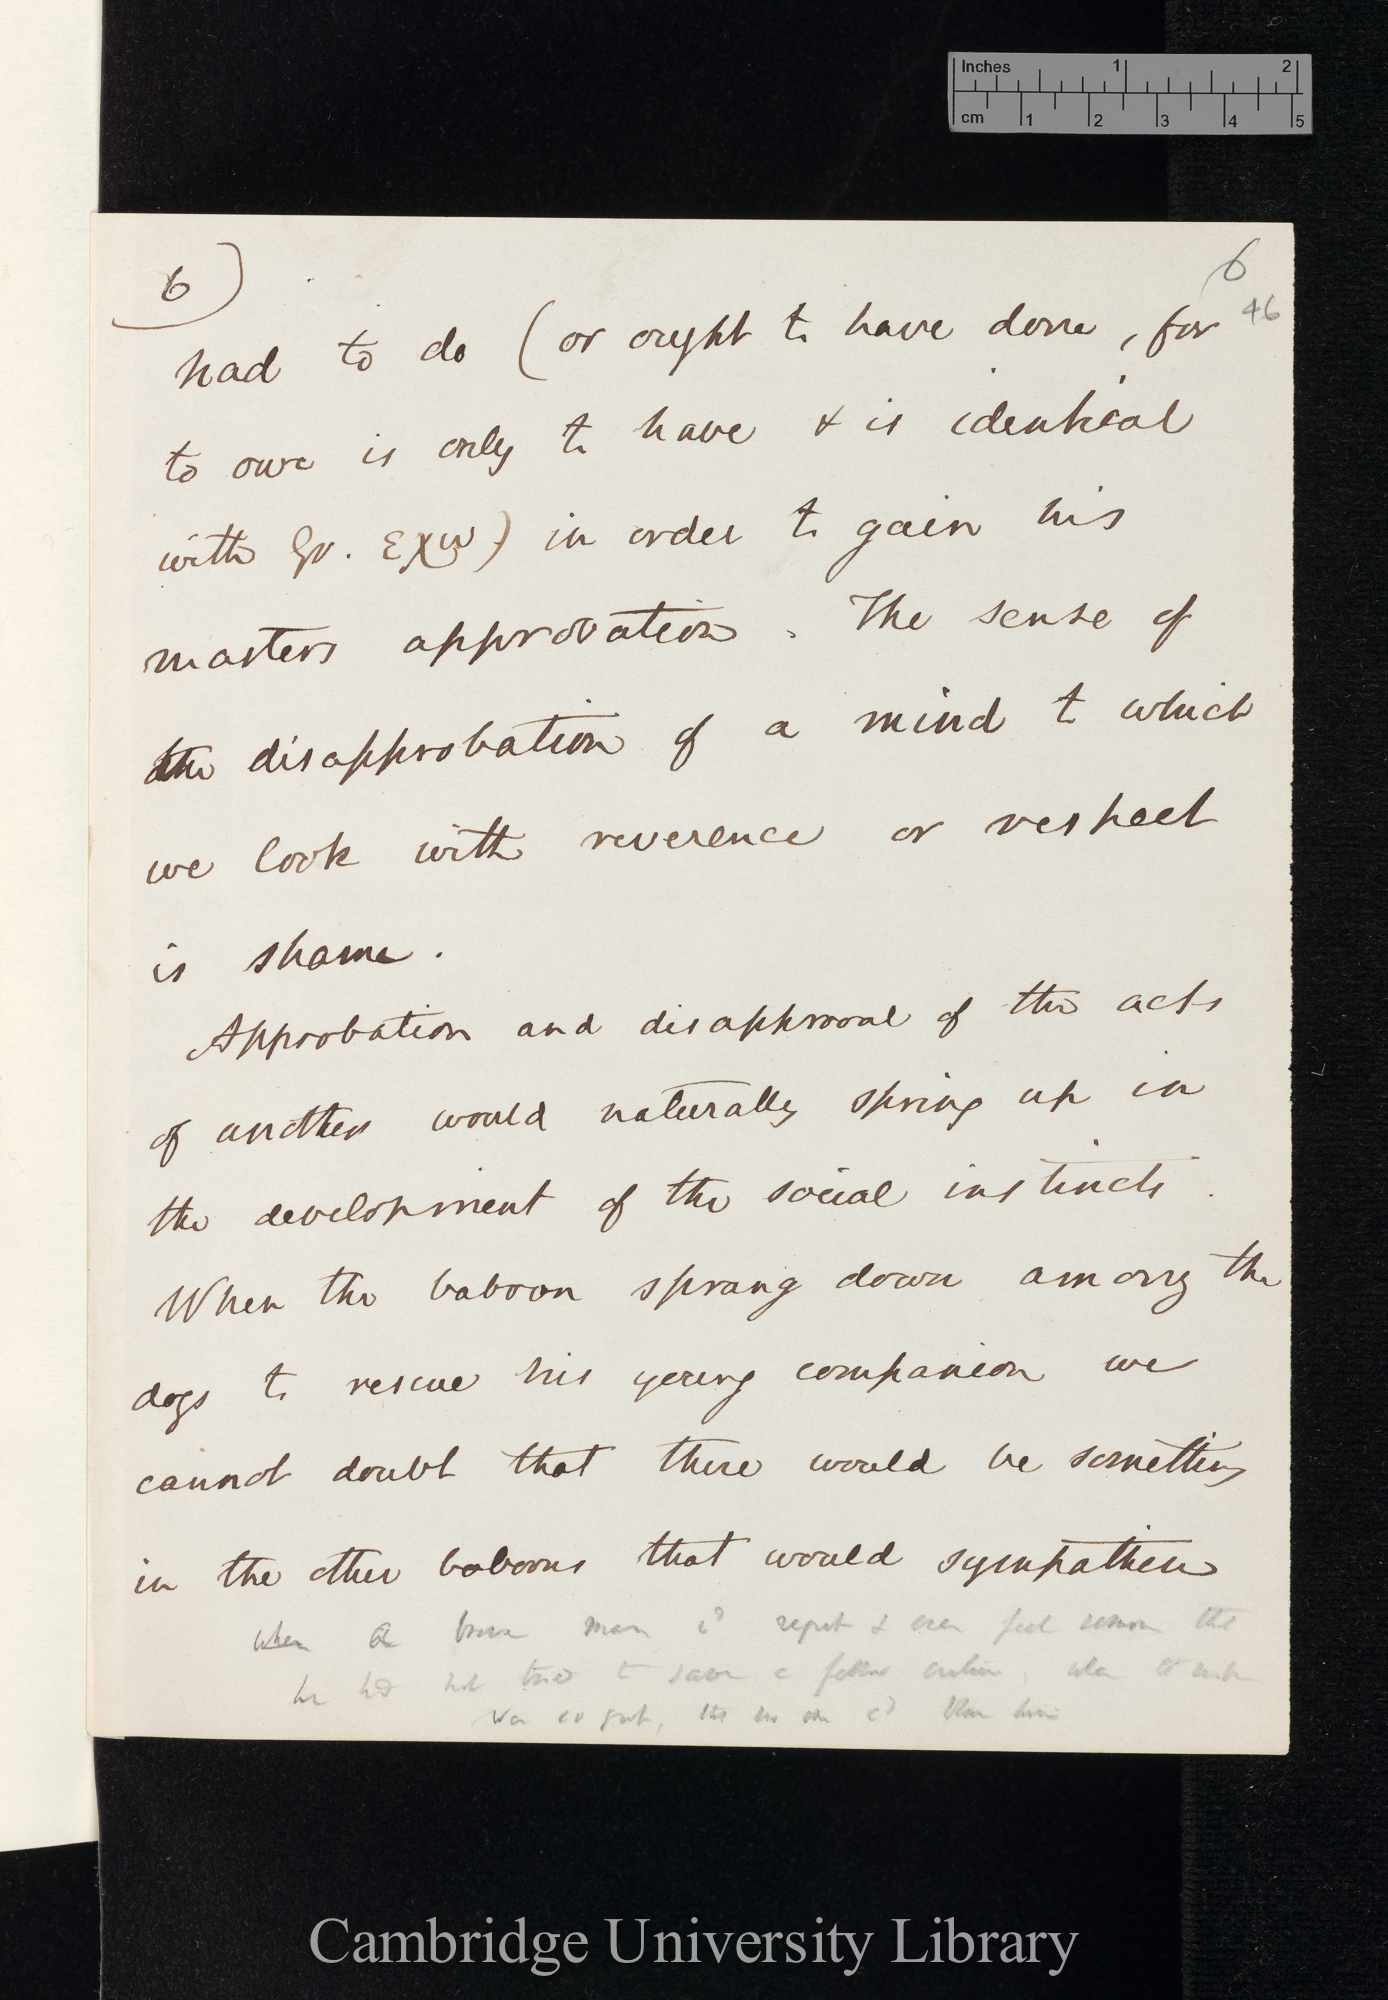 Inches 1 2
cm 1 2 3 4 5
6)
6
46
had to do (or ought to have done, for
to owe is only to have & is identical
with Gr. εχω) in order to gain his
masters approbation. The sense of
the disapprobation of a mind to which
we look with reverence or respect
is shame.
Approbation and disapproval of the acts
of another would naturally spring up in
the development of the social instincts.
When the baboon sprang down among the
dogs to rescue his young companion we
cannot doubt that there would be something
in the other baboons that would sympathise
when a brave man cd repent & even feel remorse that
he had not tried to save a fellow creature, when the
was so great, that no one cd blame him
Cambridge University Library